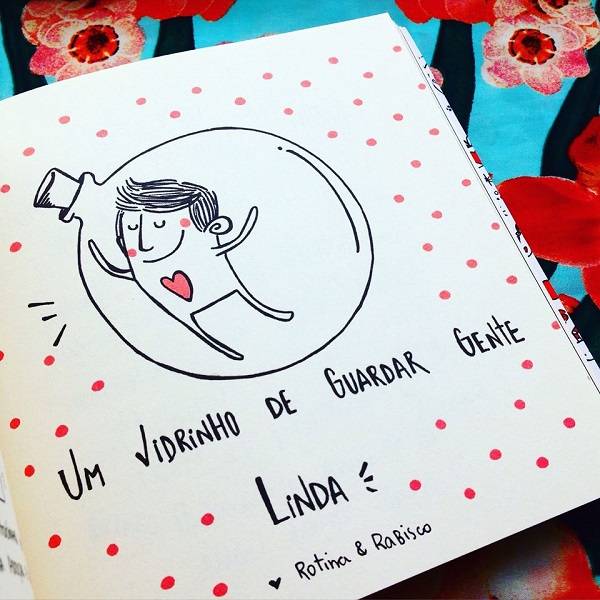 UM VIDRINHO DE GUARDAR GENTE
LINDA
Rotina & Rabisco